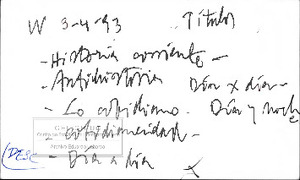 W 3-4-93 Títulos
- Historia corriente -
- Antihistoria Día x día -
- Lo cotidiano. Día y noche
- cotidianeidad -
- Día a día
DESC